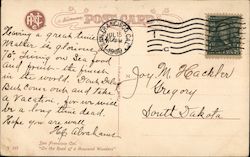 POST CARD
SAN FRANCISCO, CAL.
JUL 15
Having a great time
Weather is glorious
75° Living on Sea food
and prunes, the finest
in the world.
But come out and take
a vacation, for we will
be a long time dead.
Hope you are well
Joy M. Hackler
Gregory
South Dakota
San Francisco Cal.
"On the Road of a Thousand Wonders"